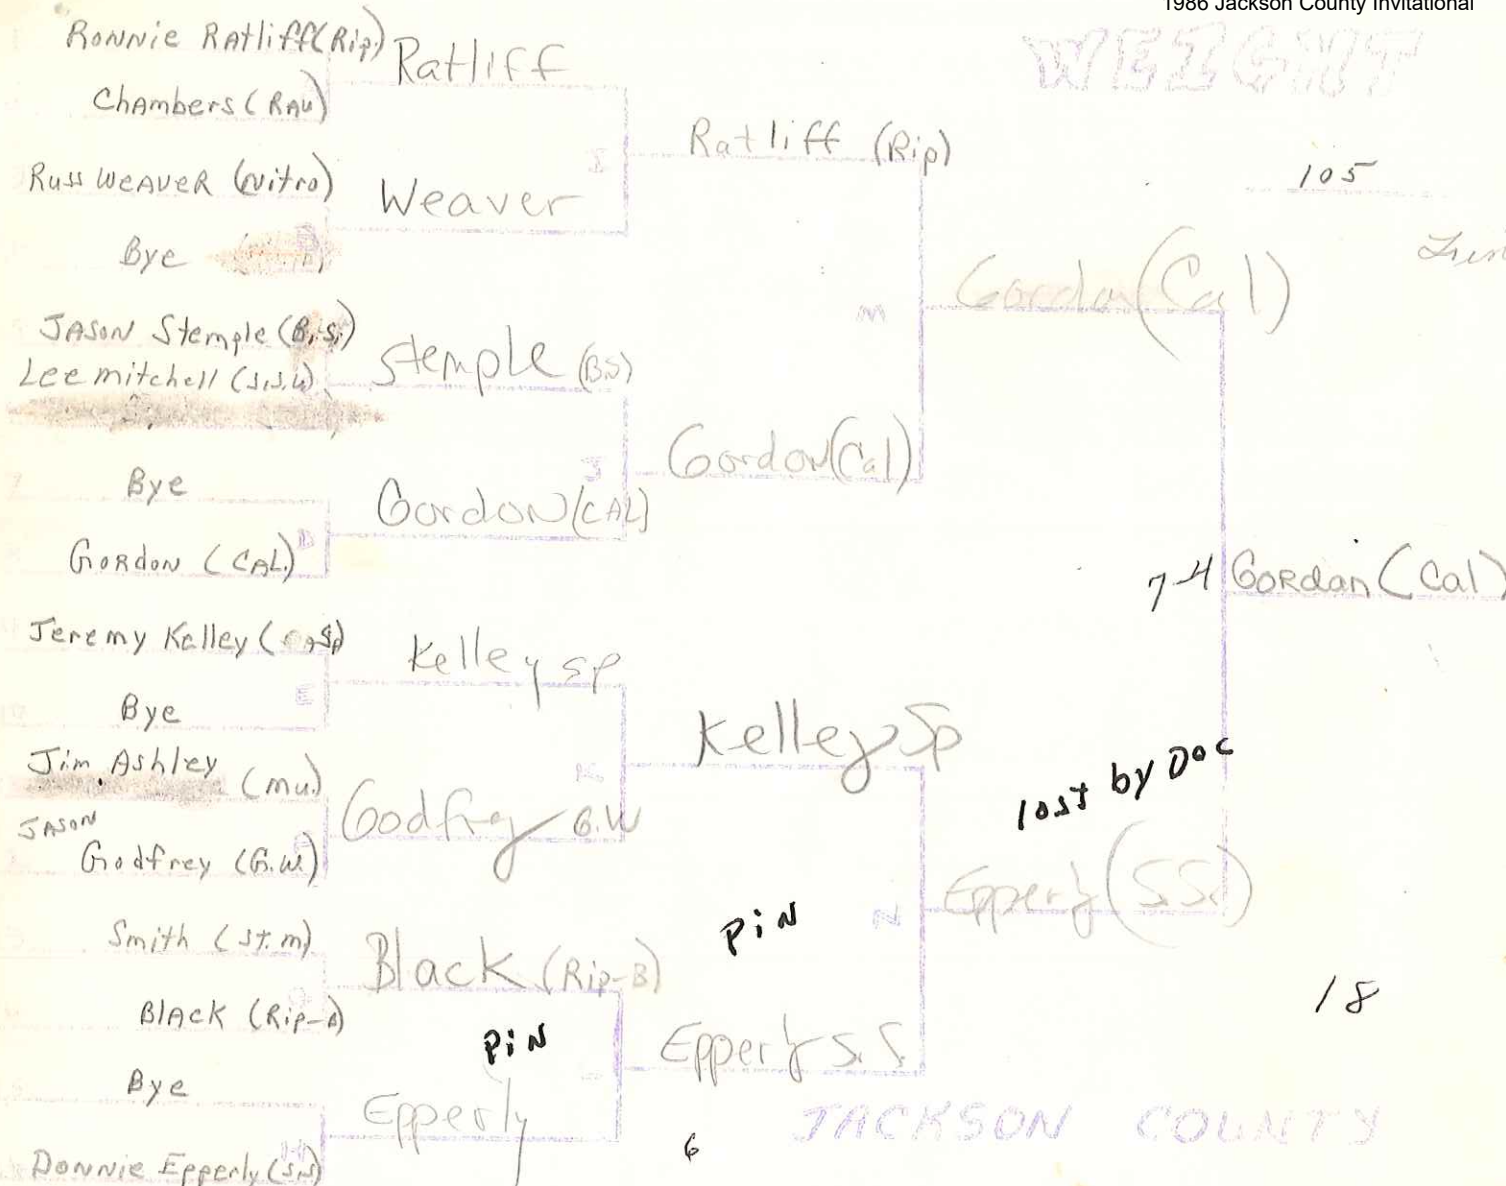 1986 Jackson County Invitational
WEIGHT
105
Ronnie Ratliff (Rip.)
Chambers (Rav)
Russ Weaver (Nitro)
Bye
Jason Stemple (B.S.)
Lee Mitchell (S.S.V)
Bye
Gordon (CAL.)
Jeremy Kelley (Sp)
Bye
Jim Ashley (Mu.)
Jason
Godfrey (G.W.)
Smith (St. M)
Black (Rip-B)
Bye
Donnie Epperly (S.S)
Ratliff
Weaver
Stemple (BS)
Gordon (CAL)
Kelley SP
Godfrey G.W
Black (Rip-B)
PiN
Epperly
I
J
K
Ratliff (Rip)
Gordon (Cal)
Kelley Sp
PiN
Epperly S.S.
6
M
N
Gordon (Cal)
lost by Doc
Epperly (S.S.)
7-4 Gordan (Cal)
18
JACKSON COUNTY